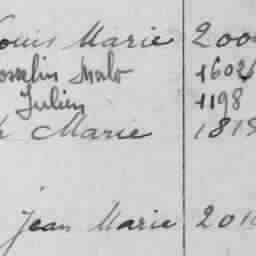 Louis Marie 200
Josselin Malo 1602
Julien 1198
Marie 1819
Jean Marie 201